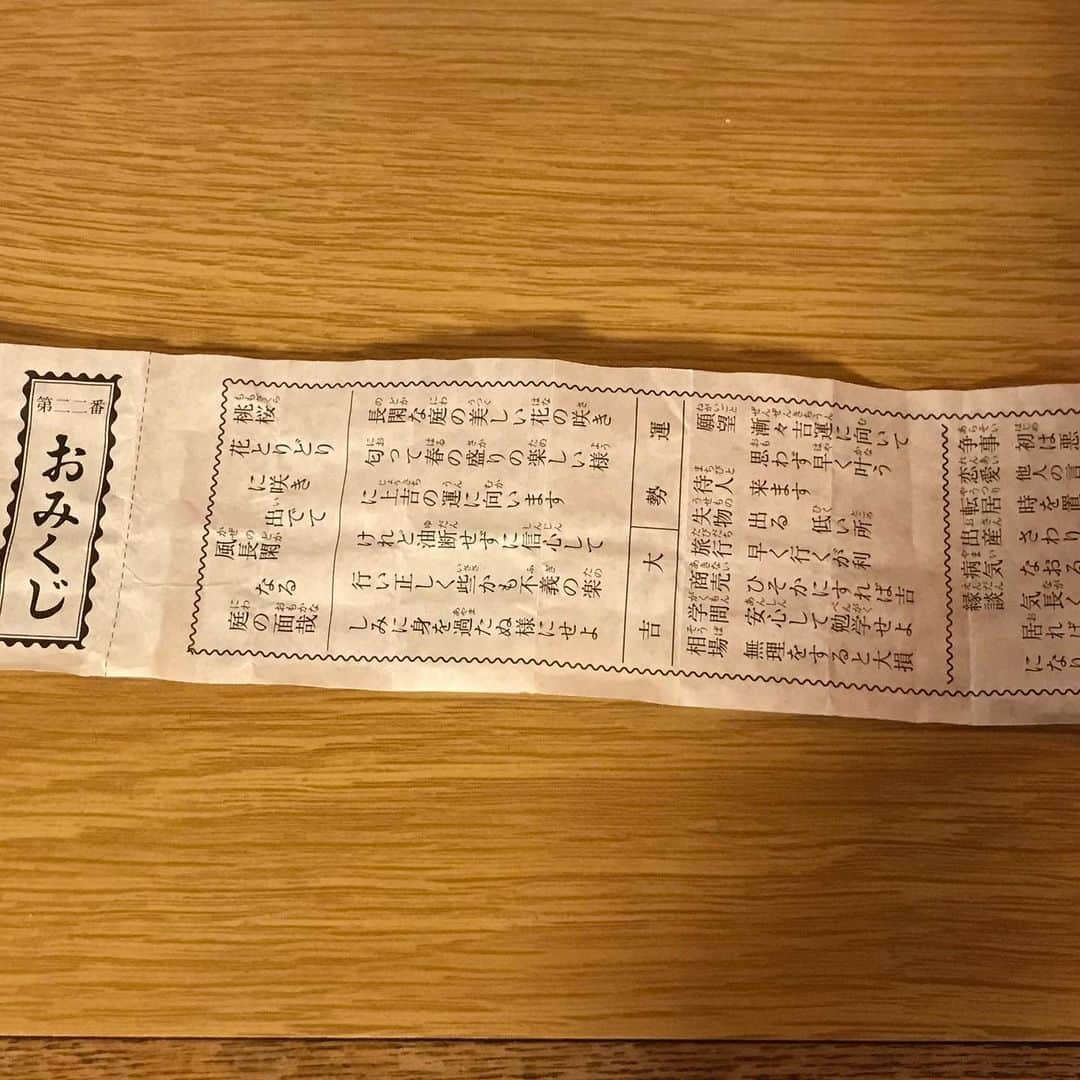 第二二番
おみくじ
桃桜
花とりどり
に咲き
出でて
風長閑
なる
庭の面哉
長閑な庭の美しい花の咲き
匂って春の盛りの楽しい様
に上吉の運に向います
けれど油断せずに信心して
行い正しく些かも不義の楽
しみに身を過たぬ様にせよ
運勢 大吉
願望 漸々吉運に向いて
思わず早く叶う
待人 来ます
失物 出る 低い所
旅行 早く行くが利
商売 ひそかにすれば吉
学問 安心して勉学せよ
相場 無理をすると大損
争事 初は悪
恋愛 他人の言
転居 時を置
出産 さわり
病気 なおる
縁談 気長く
居れば
になり